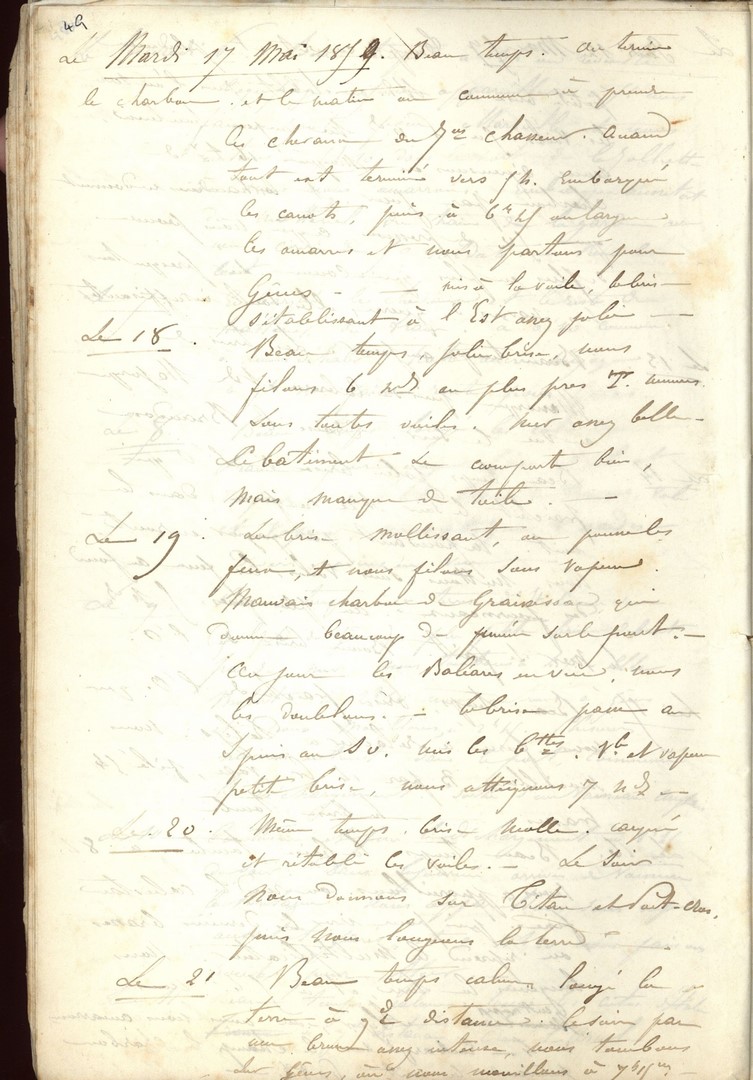 49
Le Mardi 17 Mai 1859. Beau temps. On termine
le charbon et le matin on commence à prendre
les chevaux du 7me chasseur. Quand
tout est terminé vers 5h. Embarqué
les canots, puis à 6h 45 on largue
les amarres et nous partons pour
Gênes - mis à la voile, la brise
s'établissant à l'Est assez jolie -
Le 18. Beau temps, jolie brise, nous
filons 6 nds au plus près T. amures
sous toutes voiles. Mer assez belle -
Le batiment se comporte bien,
mais manque de toile. -
Le 19. La brise mollissant, on pousse les
feux, et nous filons sous vapeur.
Mauvais charbon de Graissessac qui
donne beaucoup de fumée sur le pont. -
Au jour les Baléares en vue, nous
les doublons. - la brise passe au
S puis au SO. mis les bttes. Vle et vapeur
petite brise, nous atteignons 7 nds -
Le 20. Même temps. brise molle. cargué
et rétabli les voiles. - Le soir
nous donnons sur Titan et Port-cros,
puis nous longeons la terre -
Le 21 Beau temps calme longé la
terre à gde distance. le soir par
une brume assez intense, nous tombons
sur Gênes, où nous mouillons à 7h